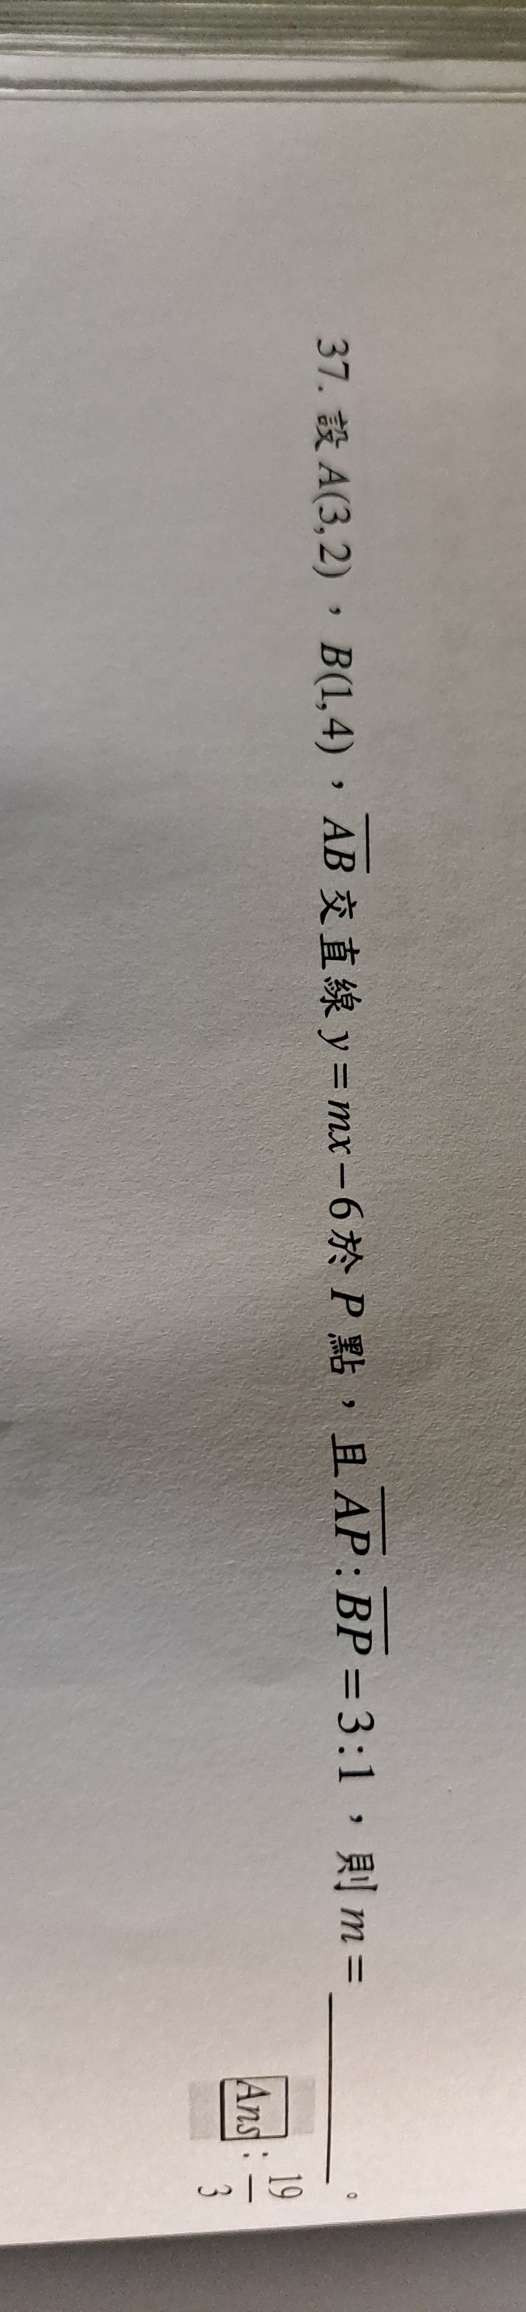 37. 設 A(3,2),B(1,4),\overline{AB} 交直線 y=mx-6 於 P 點,且 \overline{AP}:\overline{BP}=3:1,則 m=________。
Ans:19/3